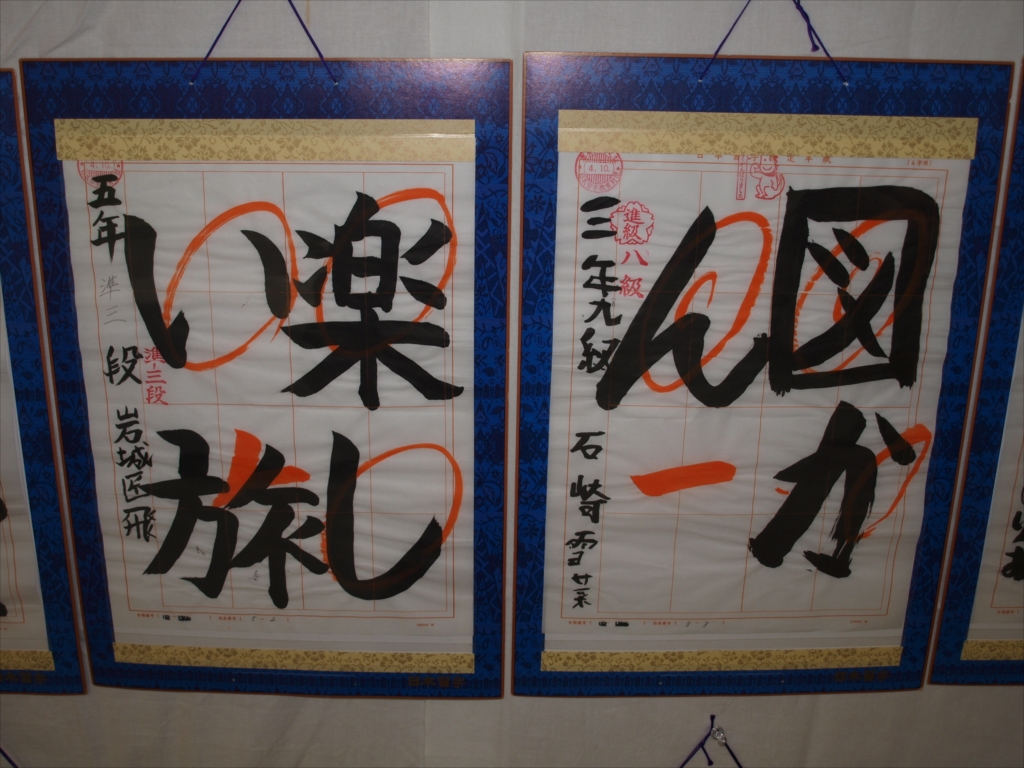 楽し
い旅
五年 準三段 岩城匠飛
準三段
4.10.
図か
ん
三年九級 石崎雪菜
進級
八級
4.10.